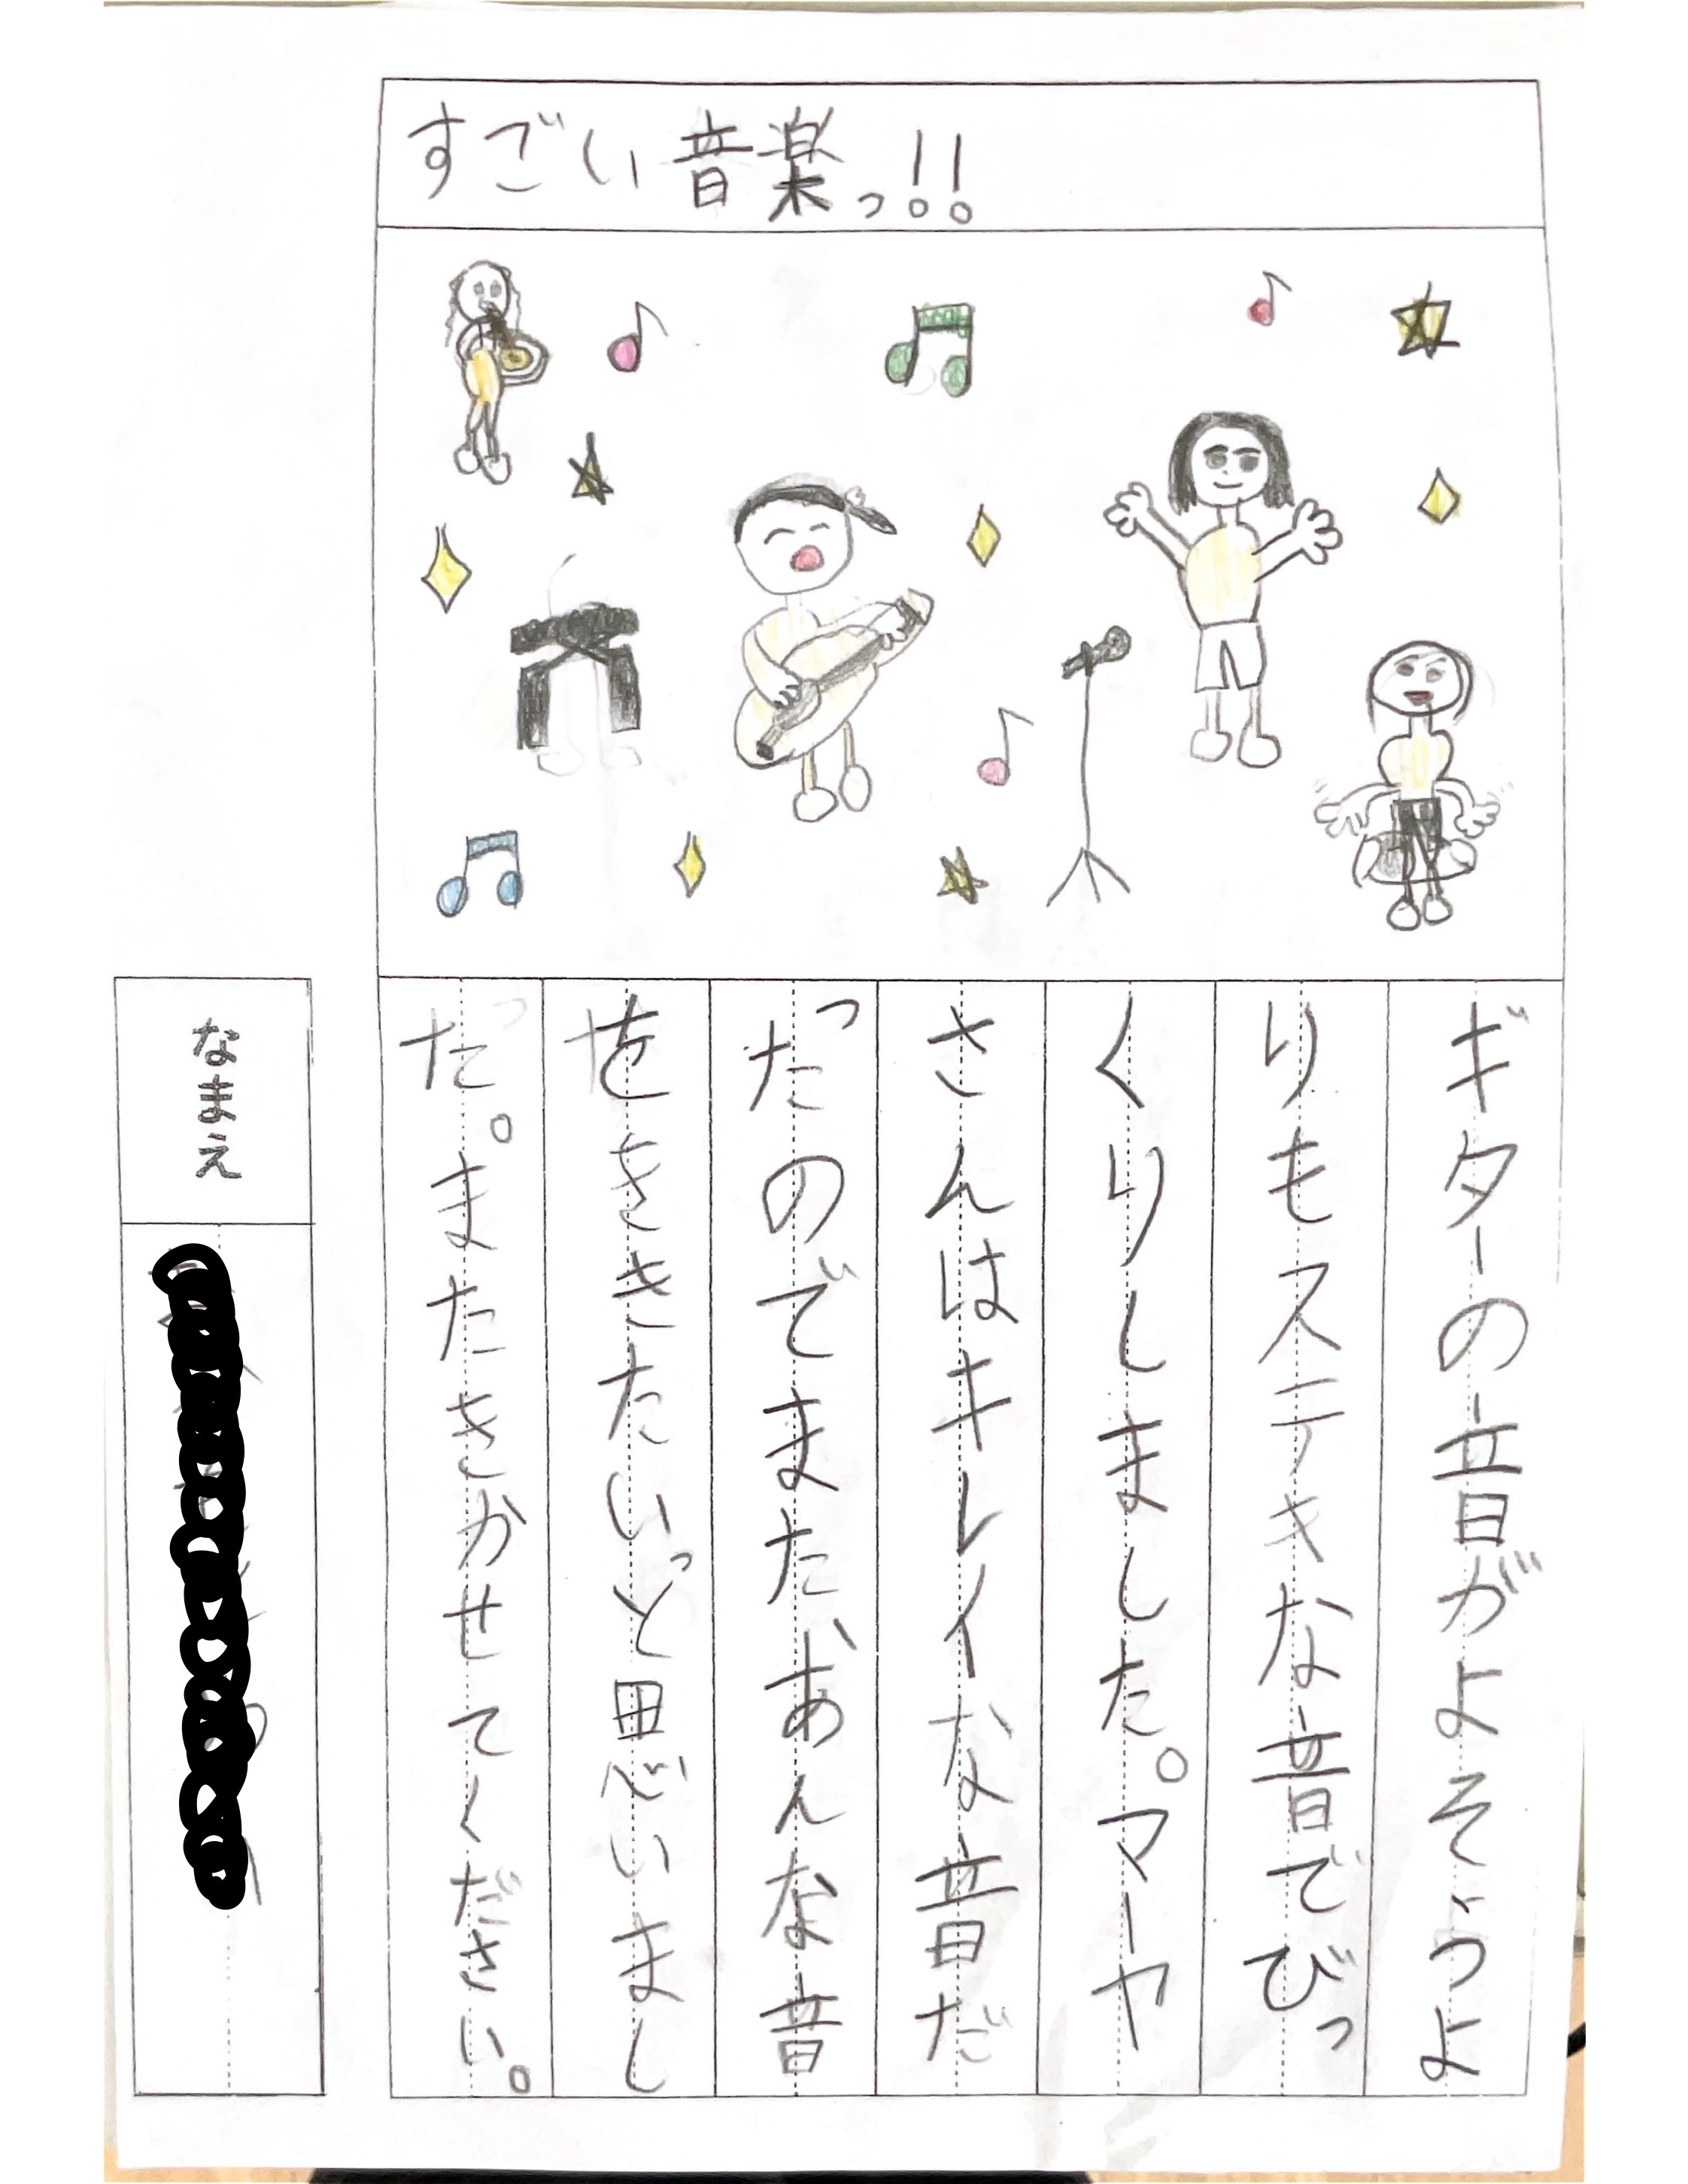 すごい音楽っ!!
ギターの音がよそうよ
りもステキな音でびっ
くりしました。マーヤ
さんはキレイな音だ
ったのでまた、あんな音
をききたいっと思いまし
た。またきかせてください。
なまえ